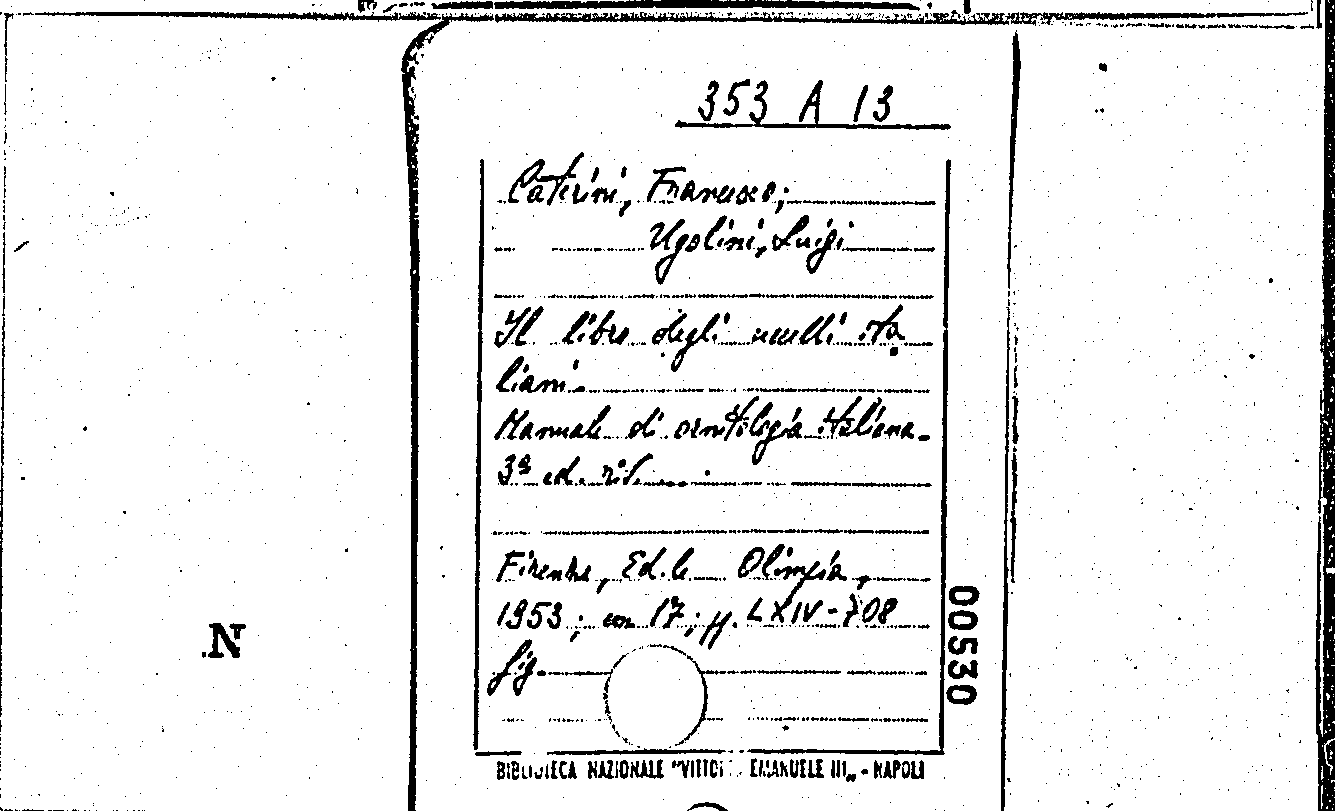 353 A 13
Caterini, Francesco;
Ugolini, Luigi
Il libro degli uccelli ita
liani.
Manuale di ornitologia italiana.
3ª ed. riv. ....
Firenze, Ed.le Olimpia,
1953; cm 17; pp. LXIV-708
fig.
00530
N
BIBLIOTECA NAZIONALE "VITTOR. EMANUELE III„ - NAPOLI